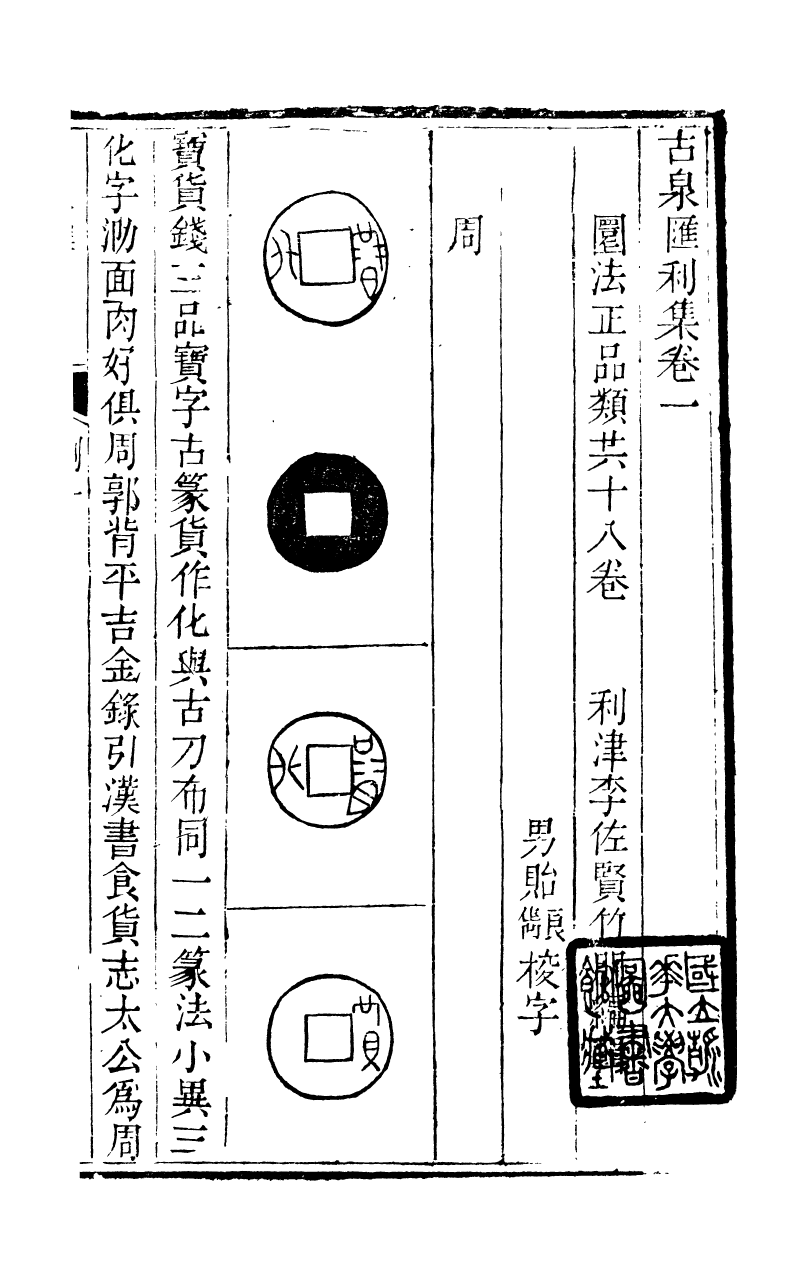 古泉匯利集卷一
圜法正品類共十八卷 利津李佐賢竹
男貽 校字
周
寶貨錢三品寶字古篆貨作化與古刀布同一二篆法小異三
化字泐面肉好俱周郭背平吉金錄引漢書食貨志太公爲周
國立
大學
圖書